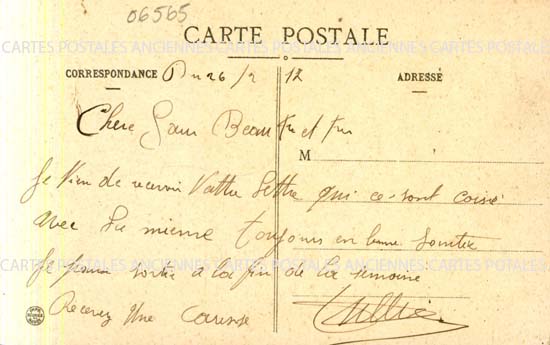 06565
CARTE POSTALE
CARTES POSTALES ANCIENNES CARTES POSTALES ANCIENNES CARTES POSTALES
CORRESPONDANCE Du 26/2 12 ADRESSE
Chere Soeur Beau et
M
Je vien de recevoir Vottre Lettre qui ce sont coisé
avec La mienne toujours en bonne Santée
CARTES POSTALES ANCIENNES CARTES POSTALES ANCIENNES CARTES POTALES
Je pense sortir a La fin de La semaine
Recevez Une caresse